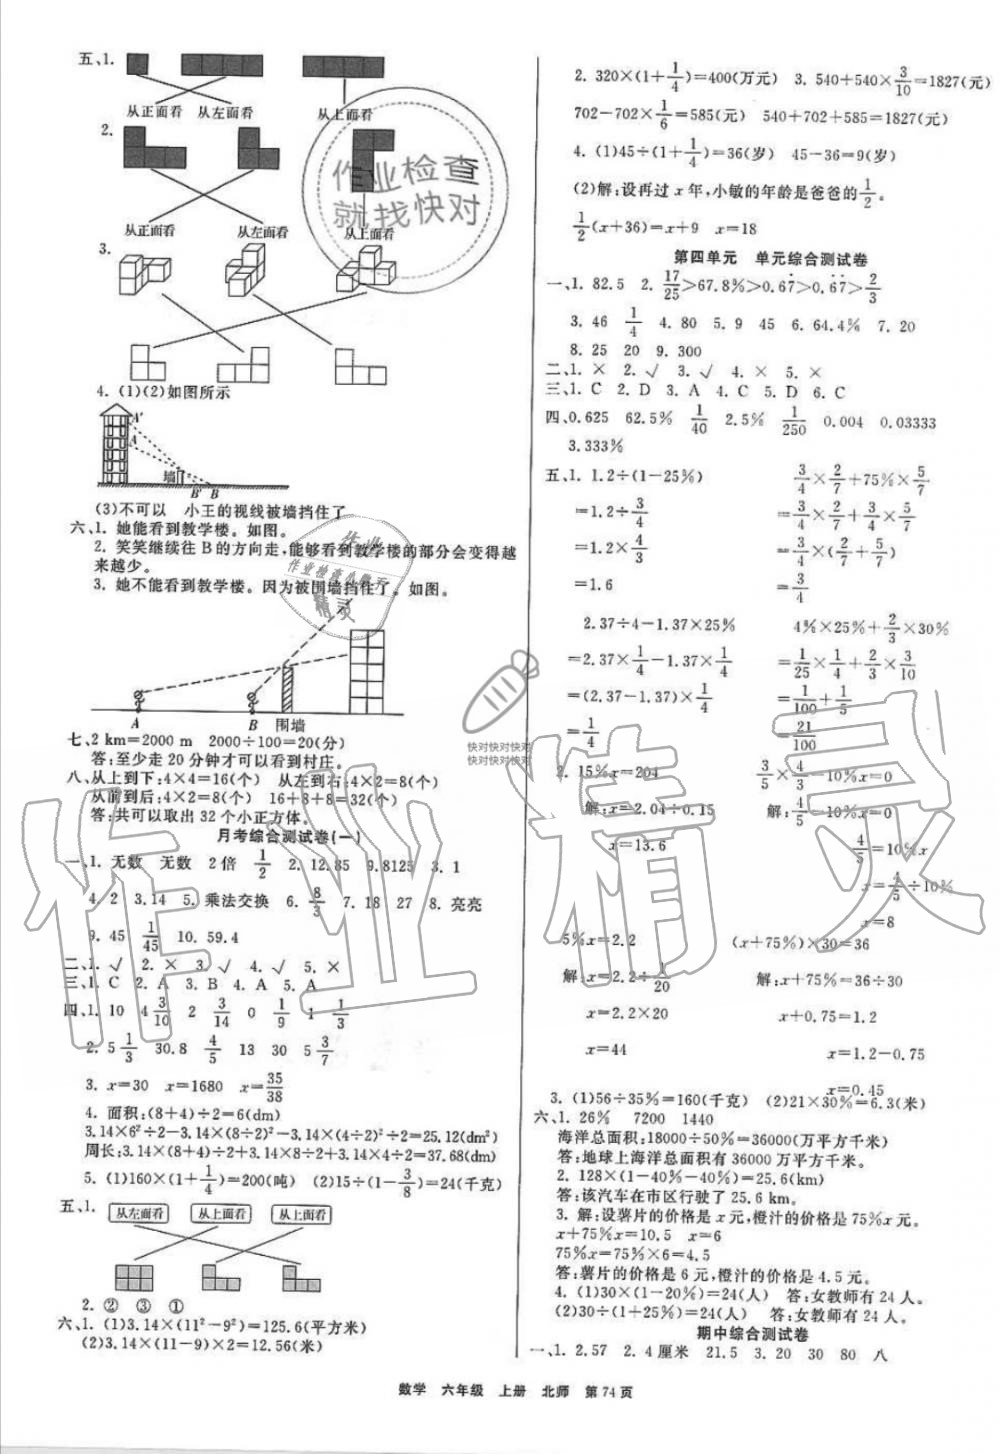 五、1.
从正面看 从左面看 从上面看
2.
从正面看 从左面看 从上面看
3.
4. (1)(2)如图所示
A′
A
墙
B′ B
(3)不可以 小王的视线被墙挡住了
六、1. 她能看到教学楼。如图。
2. 笑笑继续往 B 的方向走,能够看到教学楼的部分会变得越
来越少。
3. 她不能看到教学楼。因为被围墙挡住了。如图。
A B 围墙
七、2 km=2000 m 2000÷100=20(分)
答:至少走 20 分钟才可以看到村庄。
八、从上到下:4×4=16(个) 从左到右:4×2=8(个)
从前到后:4×2=8(个) 16+8+8=32(个)
答:共可以取出 32 个小正方体。
月考综合测试卷(一)
一、1. 无数 无数 2倍 1/2 2. 12.85 9.8125 3. 1
4. 2 3.14 5. 乘法交换 6. 8/3 7. 18 27 8. 亮亮
9. 45 1/45 10. 59.4
二、1. √ 2. × 3. √ 4. √ 5. ×
三、1. C 2. A 3. B 4. A 5. A
四、1. 10 4 3/10 2 3/14 0 1/9 1 1/3
2. 5 1/3 30.8 4/5 13 30 5 3/7
3. x=30 x=1680 x=35/38
4. 面积:(8+4)÷2=6(dm)
3.14×6²÷2-3.14×(8÷2)²-3.14×(4÷2)²÷2=25.12(dm²)
周长:3.14×(8+4)÷2+3.14×8÷2+3.14×4÷2=37.68(dm)
5. (1)160×(1+1/4)=200(吨) (2)15÷(1-3/8)=24(千克)
五、1. 从左面看 从上面看 从上面看
2. ② ③ ①
六、1. (1)3.14×(11²-9²)=125.6(平方米)
(2)3.14×(11-9)×2=12.56(米)
2. 320×(1+1/4)=400(万元) 3. 540+540×3/10=1827(元)
702-702×1/6=585(元) 540+702+585=1827(元)
4. (1)45÷(1+1/4)=36(岁) 45-36=9(岁)
(2)解:设再过 x 年,小敏的年龄是爸爸的1/2。
1/2(x+36)=x+9 x=18
第四单元 单元综合测试卷
一、1. 82.5 2. 17/25>67.8%>0.67̇>0.6̇7̇>2/3
3. 46 1/4 4. 80 5. 9 45 6. 64.4% 7. 20
8. 25 20 9. 300
二、1. × 2. √ 3. √ 4. × 5. ×
三、1. C 2. D 3. A 4. C 5. D 6. C
四、0.625 62.5% 1/40 2.5% 1/250 0.004 0.03333
3.333%
五、1. 1.2÷(1-25%) 3/4×2/7+75%×5/7
=1.2÷3/4 =3/4×2/7+3/4×5/7
=1.2×4/3 =3/4×(2/7+5/7)
=1.6 =3/4
2.37÷4-1.37×25% 4%×25%+2/3×30%
=2.37×1/4-1.37×1/4 =1/25×1/4+2/3×3/10
=(2.37-1.37)×1/4 =1/100+1/5
=1/4 =21/100
2. 15%x=204 3/5×4/3-10%x=0
解:x=2.04÷0.15 解:4/5-10%x=0
x=13.6 4/5=10%x
x=4/5÷10%
x=8
5%x=2.2 (x+75%)×30=36
解:x=2.2÷1/20 解:x+75%=36÷30
x=2.2×20 x+0.75=1.2
x=44 x=1.2-0.75
x=0.45
3. (1)56÷35%=160(千克) (2)21×30%=6.3(米)
六、1. 26% 7200 1440
海洋总面积:18000÷50%=36000(万平方千米)
答:地球上海洋总面积有 36000 万平方千米。
2. 128×(1-40%-40%)=25.6(km)
答:该汽车在市区行驶了 25.6 km。
3. 解:设薯片的价格是 x 元,橙汁的价格是 75%x 元。
x+75%x=10.5 x=6
75%x=75%×6=4.5
答:薯片的价格是 6 元,橙汁的价格是 4.5 元。
4. (1)30×(1-20%)=24(人) 答:女教师有 24 人。
(2)30÷(1+25%)=24(人) 答:女教师有 24 人。
期中综合测试卷
一、1. 2.57 2. 4 厘米 21.5 3. 20 30 80 八
数学 六年级 上册 北师 第 74 页
作业检查
就找快对
作业
作业检查小帮手
精灵
快对快对快对
快对快对快对
作业精灵